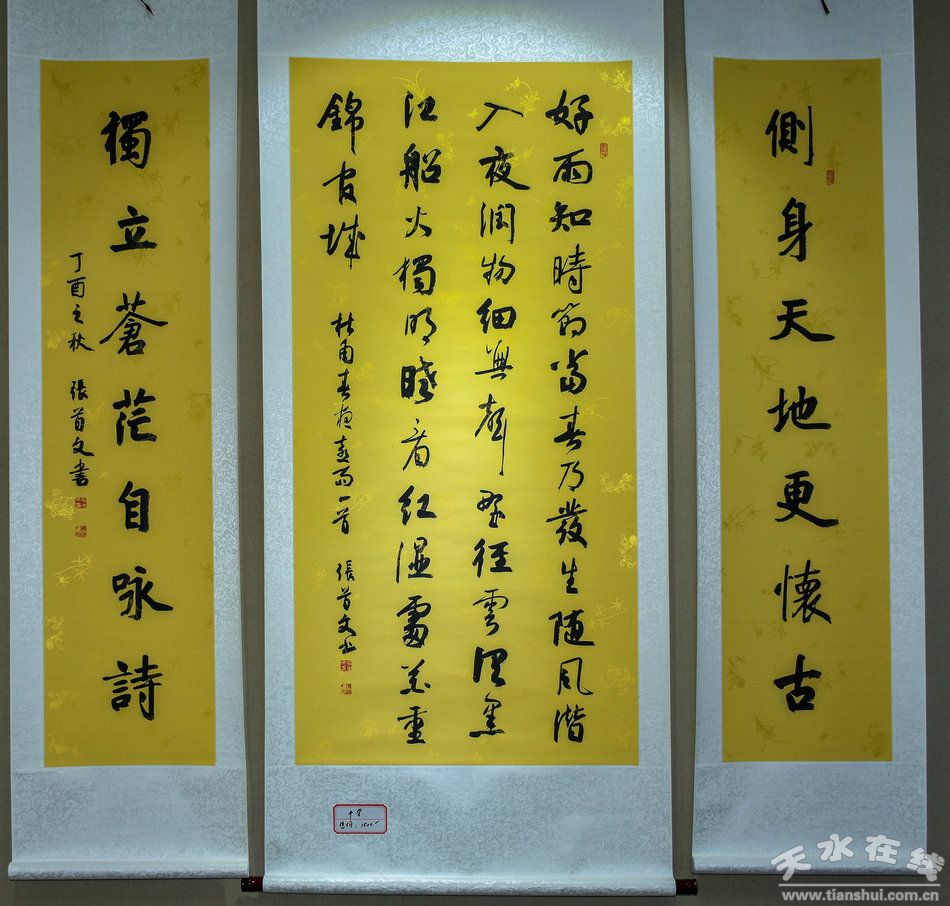 側身天地更懷古
好雨知時節當春乃發生随風潛
入夜潤物細無聲野徑雲俱黑
江船火獨明曉看紅濕處花重
錦官城
杜甫春夜喜雨一首 張首文書
獨立蒼茫自咏詩
丁酉之秋 張首文書
天水在线
www.tianshui.com.cn